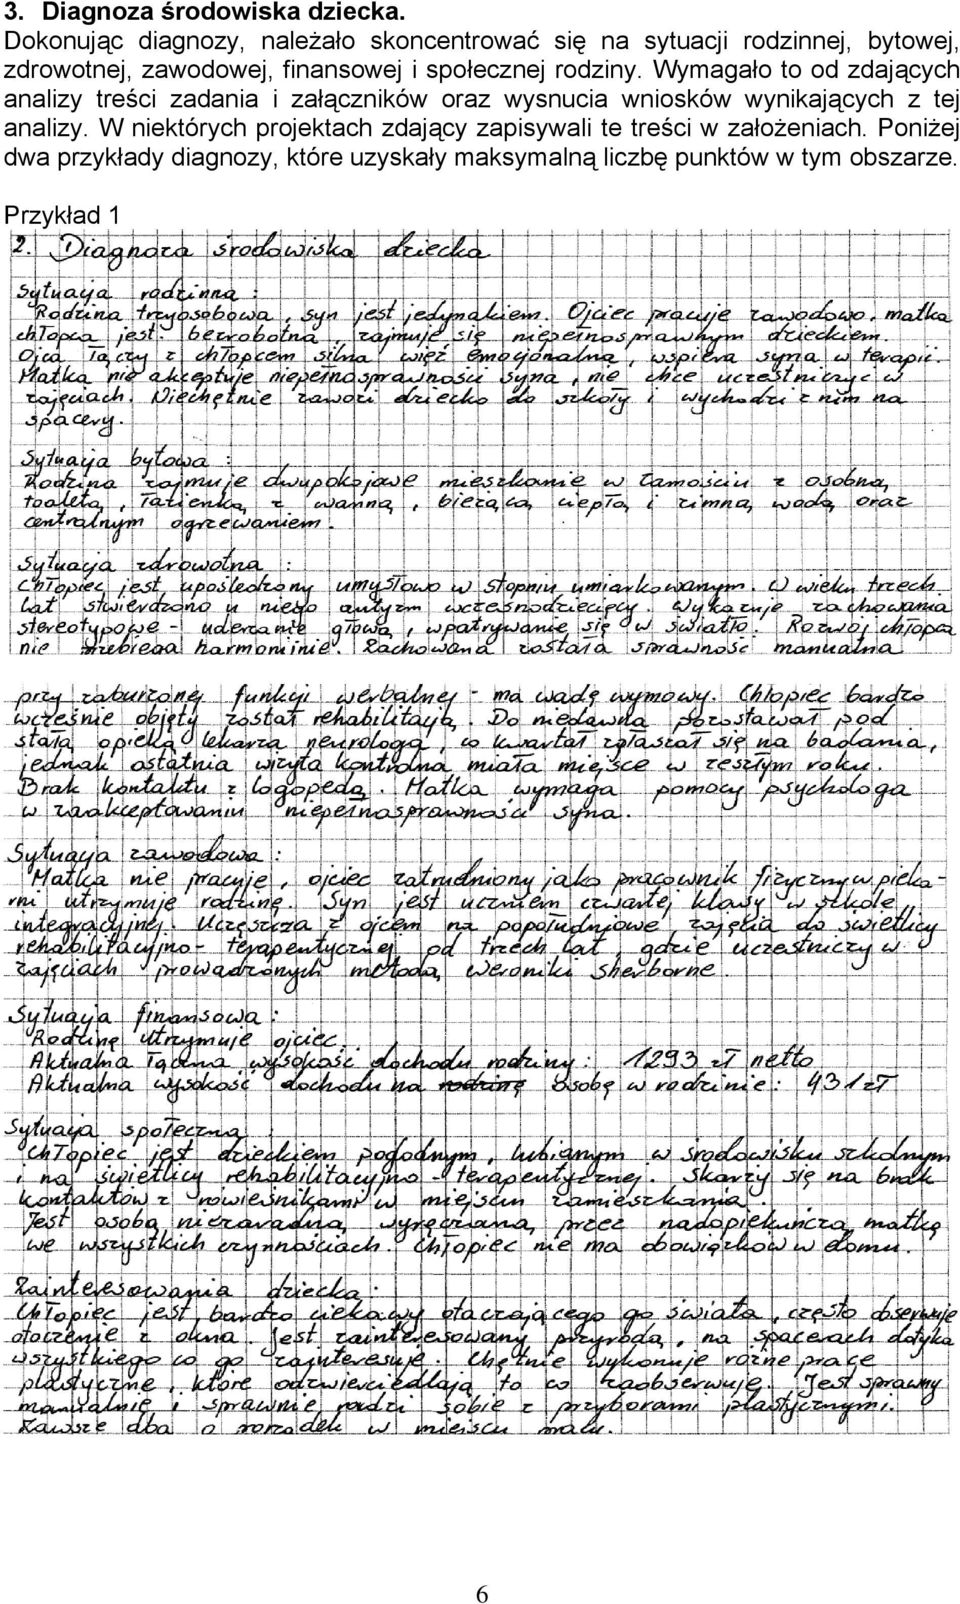 3. Diagnoza środowiska dziecka.
Dokonując diagnozy, należało skoncentrować się na sytuacji rodzinnej, bytowej,
zdrowotnej, zawodowej, finansowej i społecznej rodziny. Wymagało to od zdających
analizy treści zadania i załączników oraz wysnucia wniosków wynikających z tej
analizy. W niektórych projektach zdający zapisywali te treści w założeniach. Poniżej
dwa przykłady diagnozy, które uzyskały maksymalną liczbę punktów w tym obszarze.
Przykład 1
2. Diagnoza środowiska dziecka
Sytuacja rodzinna:
Rodzina trzyosobowa, syn jest jedynakiem. Ojciec pracuje zawodowo, matka
chłopca jest bezrobotna, zajmuje się niepełnosprawnym dzieckiem.
Ojca łączy z chłopcem silna więź emocjonalna, wspiera syna w terapii.
Matka nie akceptuje niepełnosprawności syna, nie chce uczestniczyć w
zajęciach. Niechętnie zawozi dziecko do szkoły i wychodzi z nim na
spacery.
Sytuacja bytowa:
Rodzina zajmuje dwupokojowe mieszkanie w Zamościu z osobną
toaletą, łazienką z wanną, bieżącą ciepłą i zimną wodą oraz
centralnym ogrzewaniem.
Sytuacja zdrowotna:
Chłopiec jest upośledzony umysłowo w stopniu umiarkowanym. W wieku trzech
lat stwierdzono u niego autyzm wczesnodziecięcy. Wykazuje zachowania
stereotypowe - uderzanie głową, wpatrywanie się w światło. Rozwój chłopca
nie przebiega harmonijnie. Zachowana została sprawność manualna
przy zaburzonej funkcji werbalnej - ma wadę wymowy. Chłopiec bardzo
wcześnie objęty został rehabilitacją. Do niedawna pozostawał pod
stałą opieką lekarza neurologa, co kwartał zgłaszał się na badania,
jednak ostatnia wizyta kontrolna miała miejsce w zeszłym roku.
Brak kontaktu z logopedą. Matka wymaga pomocy psychologa
w zaakceptowaniu niepełnosprawności syna.
Sytuacja zawodowa:
Matka nie pracuje, ojciec zatrudniony jako pracownik fizyczny w pieka-
rni utrzymuje rodzinę. Syn jest uczniem czwartej klasy w szkole
integracyjnej. Uczęszcza z ojcem na popołudniowe zajęcia do świetlicy
rehabilitacyjno-terapeutycznej od trzech lat, gdzie uczestniczy w
zajęciach prowadzonych metodą Weroniki Sherborne.
Sytuacja finansowa:
Rodzinę utrzymuje ojciec.
Aktualna łączna wysokość dochodu rodziny: 1293 zł netto
Aktualna wysokość dochodu na rodzinę osobę w rodzinie: 431 zł
Sytuacja społeczna:
Chłopiec jest dzieckiem pogodnym, lubianym w środowisku szkolnym
i na świetlicy rehabilitacyjno-terapeutycznej. Skarży się na brak
kontaktów z rówieśnikami w miejscu zamieszkania.
Jest osobą niezaradną, wyręczaną przez nadopiekuńczą matkę
we wszystkich czynnościach. Chłopiec nie ma obowiązków w domu.
Zainteresowania dziecka:
Chłopiec jest bardzo ciekawy otaczającego go świata, często obserwuje
otoczenie z okna. Jest zainteresowany przyrodą, na spacerach dotyka
wszystkiego co go zainteresuje. Chętnie wykonuje różne prace
plastyczne, które odzwierciedlają to co zaobserwuje. Jest sprawny
manualnie i sprawnie radzi sobie z przyborami plastycznymi.
Zawsze dba o porządek w miejscu pracy.
6